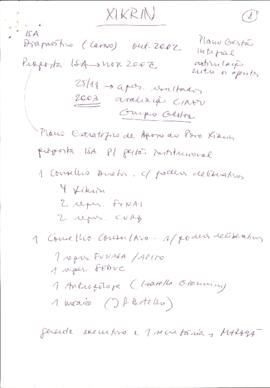 XIKRIN
1
ISA
Diagnóstico (Lavas) out. 2002
Plano Gestão
integral
articulação
entre os agentes
Proposta ISA → nov 2002
25/11 → apres. resultados
2002 avaliação
Grupo Gestor
Plano Estratégico de Apoio ao Povo Xikrin
proposta ISA p/ gestão institucional
1 Conselho Diretor c/ poderes deliberativos
4 Xikrin
2 repres. FUNAI
2 repres. CVRD
1 Conselho Consultivo s/ poderes deliberativos
1 repres FUNASA / APITO
1 repres. SEDUC
1 Antropóloga (Isabelle Giannini)
1 médico (J P Botelho)
gerente executivo e 1 secretária, MARABÁ